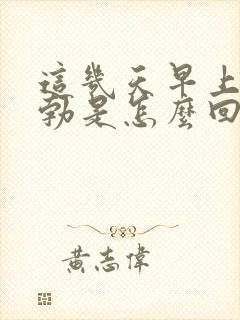 這幾天早上
勃是怎麼回
黃志偉